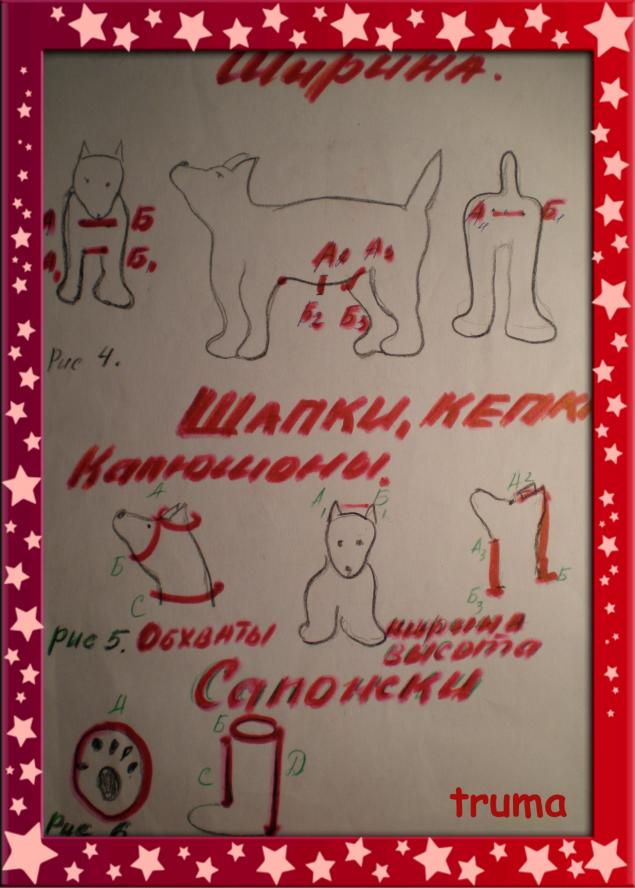 Ширина.
А Б
А₁ Б₁
А₁ А₄
Б₂ Б₃
А₄ Б₄
Рис 4.
Шапки, кепки
Капюшоны.
А
Б
С
А₁ Б₁
А₂
А₃ Б
Б₃
Рис 5. Обхваты
ширина
высота
Сапожки
А
Б
С D
Рис 6
truma